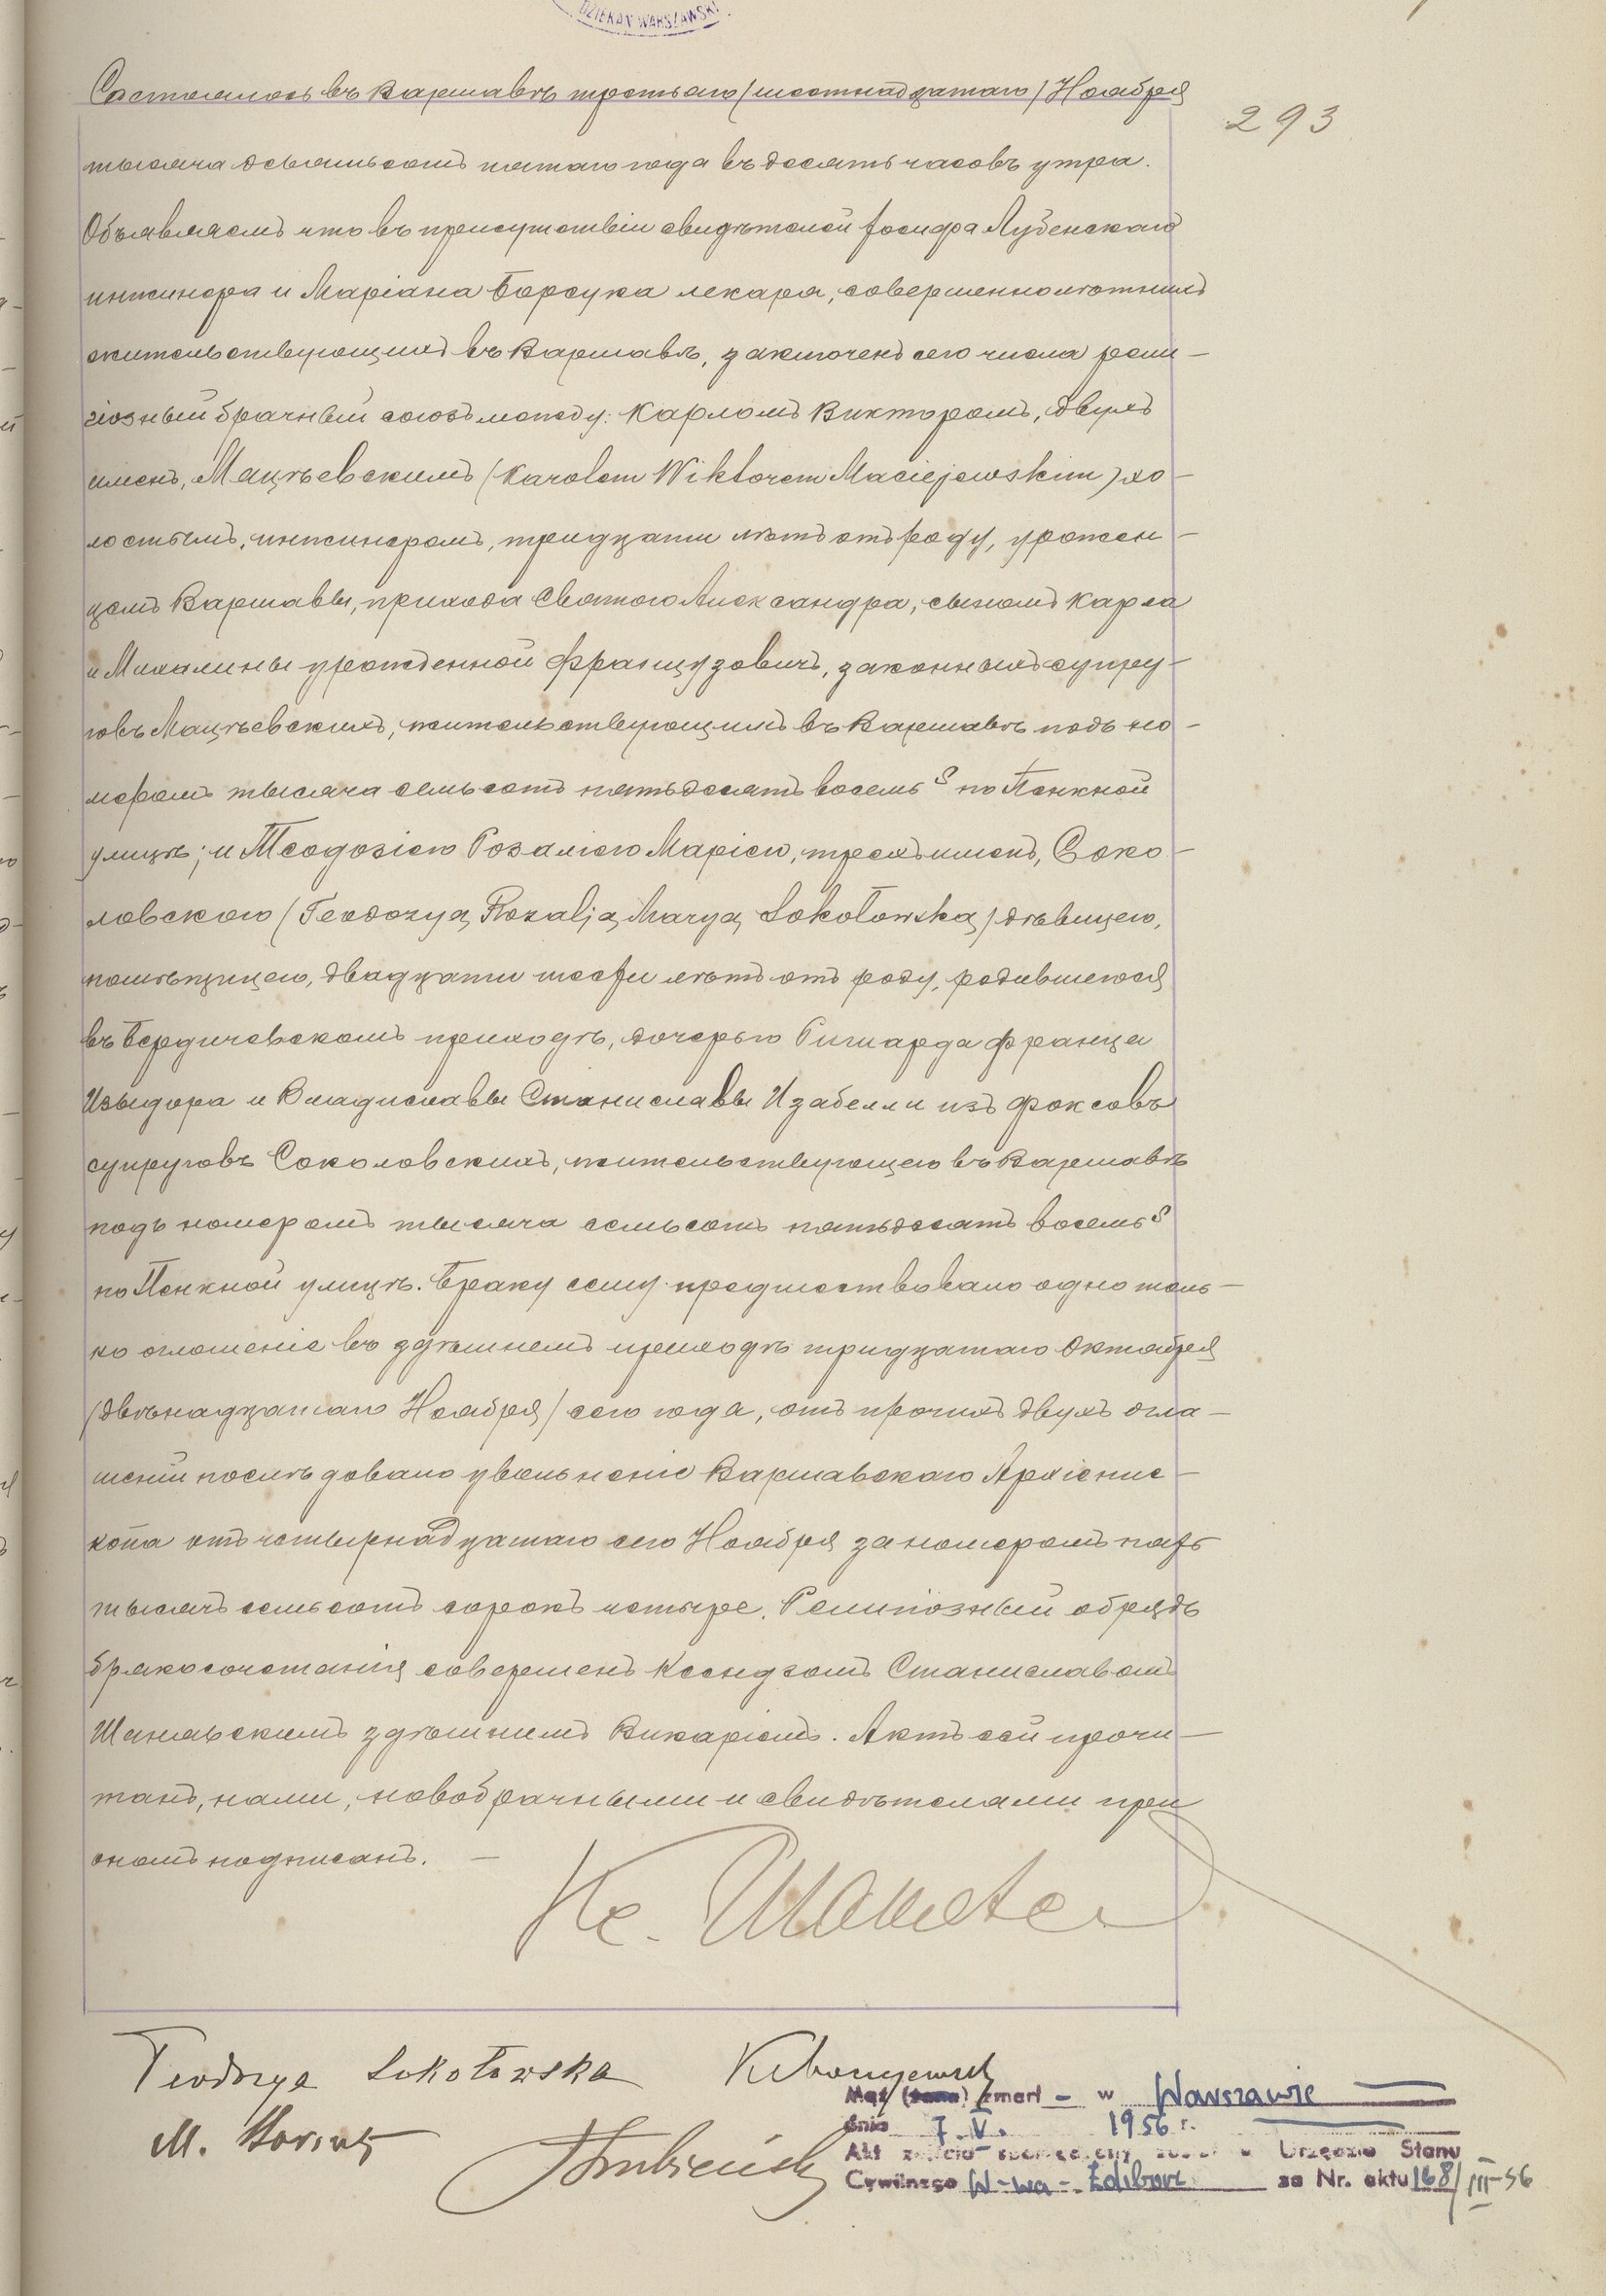 DZIEKAN WARSZAWSKI
293
Состоялось въ Варшавѣ третьяго /шестнадцатаго/ Ноября
тысяча девятьсотъ пятаго года въ десять часовъ утра.
Объявляемъ что въ присутствіи свидѣтелей Іосифа Лубенскаго
инжинера и Маріана Борсука лекаря, совершеннолѣтнихъ
жительствующихъ въ Варшавѣ, заключенъ сего числа рели-
гіозный брачный союзъ между: Карломъ Викторомъ, двухъ
именъ, Мацѣевскимъ (Karolem Wiktorem Maciejewskim) хо-
лостымъ, инжинеромъ, тридцати лѣтъ отъ роду, урожен-
цемъ Варшавы, прихода Святого Александра, сыномъ Карла
и Михалины урожденной Французовичъ, законныхъ супру-
говъ Мацѣевскихъ, жительствующимъ въ Варшавѣ подъ но-
меромъ тысяча семьсотъ пятьдесятъ восемь S по Пенкной
улицѣ; и Теодозіею Розаліею Маріею, трехъ именъ, Соко-
ловскою (Teodozyą Rozalją Maryą Sokołowską) дѣвицею,
помѣщицею, двадцати шести лѣтъ отъ роду, родившеюся
въ Бердичевскомъ приходѣ, дочерью Ришарда Франца
Изыдора и Владиславы Станиславы Изабелли изъ Фоксовъ
супруговъ Соколовскихъ, жительствующею въ Варшавѣ
подъ номеромъ тысяча семьсотъ пятьдесятъ восемь S
по Пенкной улицѣ. Браку сему предшествовало одно толь-
ко оглошеніе въ здѣшнемъ приходѣ тридцатаго Октября
/двѣнадцатаго Ноября/ сего года, отъ прочихъ двухъ огла-
шеній послѣдовало увольненіе Варшавскаго Архіепис-
копа отъ четырнадцатаго сего Ноября за номеромъ пять
тысячъ семьсотъ сорокъ четыре. Религіозный обрядъ
бракосочетанія совершенъ Ксендзомъ Станиславомъ
Шанявскимъ здѣшнимъ Викаріемъ. Актъ сей прочи-
танъ, нами, новобрачными и свидѣтелями при
ономъ подписанъ. —
Кс.
Teodozya Sokołowska
M. Borsuk
JŁubieński
Mąż (żona) zmarł - w Warszawie
dnia 7.V. 1956 r.
Akt zejścia sporządzony został w Urzędzie Stanu
Cywilnego W-wa - Żoliborz za Nr. aktu 168/III-56